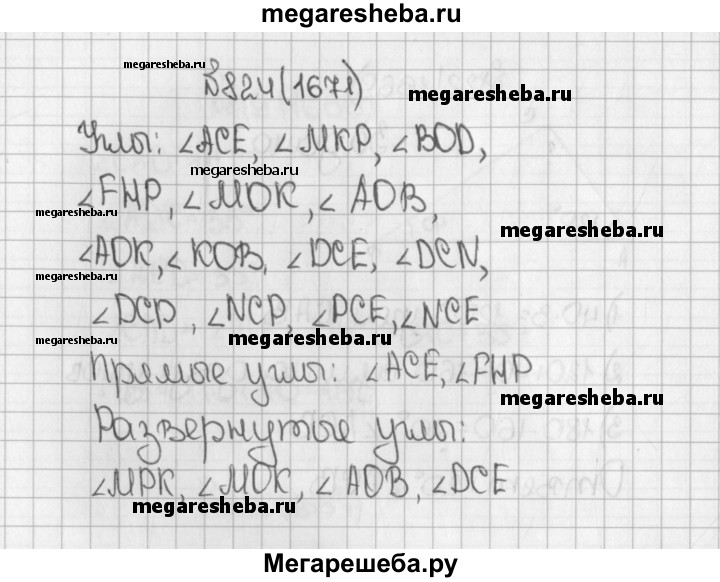 megaresheba.ru
megaresheba.ru
№824(1671)
megaresheba.ru
Углы: ∠ACE, ∠MKP, ∠BOD,
megaresheba.ru
∠FHP, ∠MOK, ∠AOB,
megaresheba.ru
megaresheba.ru
∠AOK, ∠KOB, ∠DCE, ∠DCN,
megaresheba.ru
∠DCP, ∠NCP, ∠PCE, ∠NCE
megaresheba.ru
megaresheba.ru
Прямые углы: ∠ACE, ∠FHP
megaresheba.ru
Развернутые углы:
∠MPK, ∠MOK, ∠AOB, ∠DCE
megaresheba.ru
Мегарешеба.ру